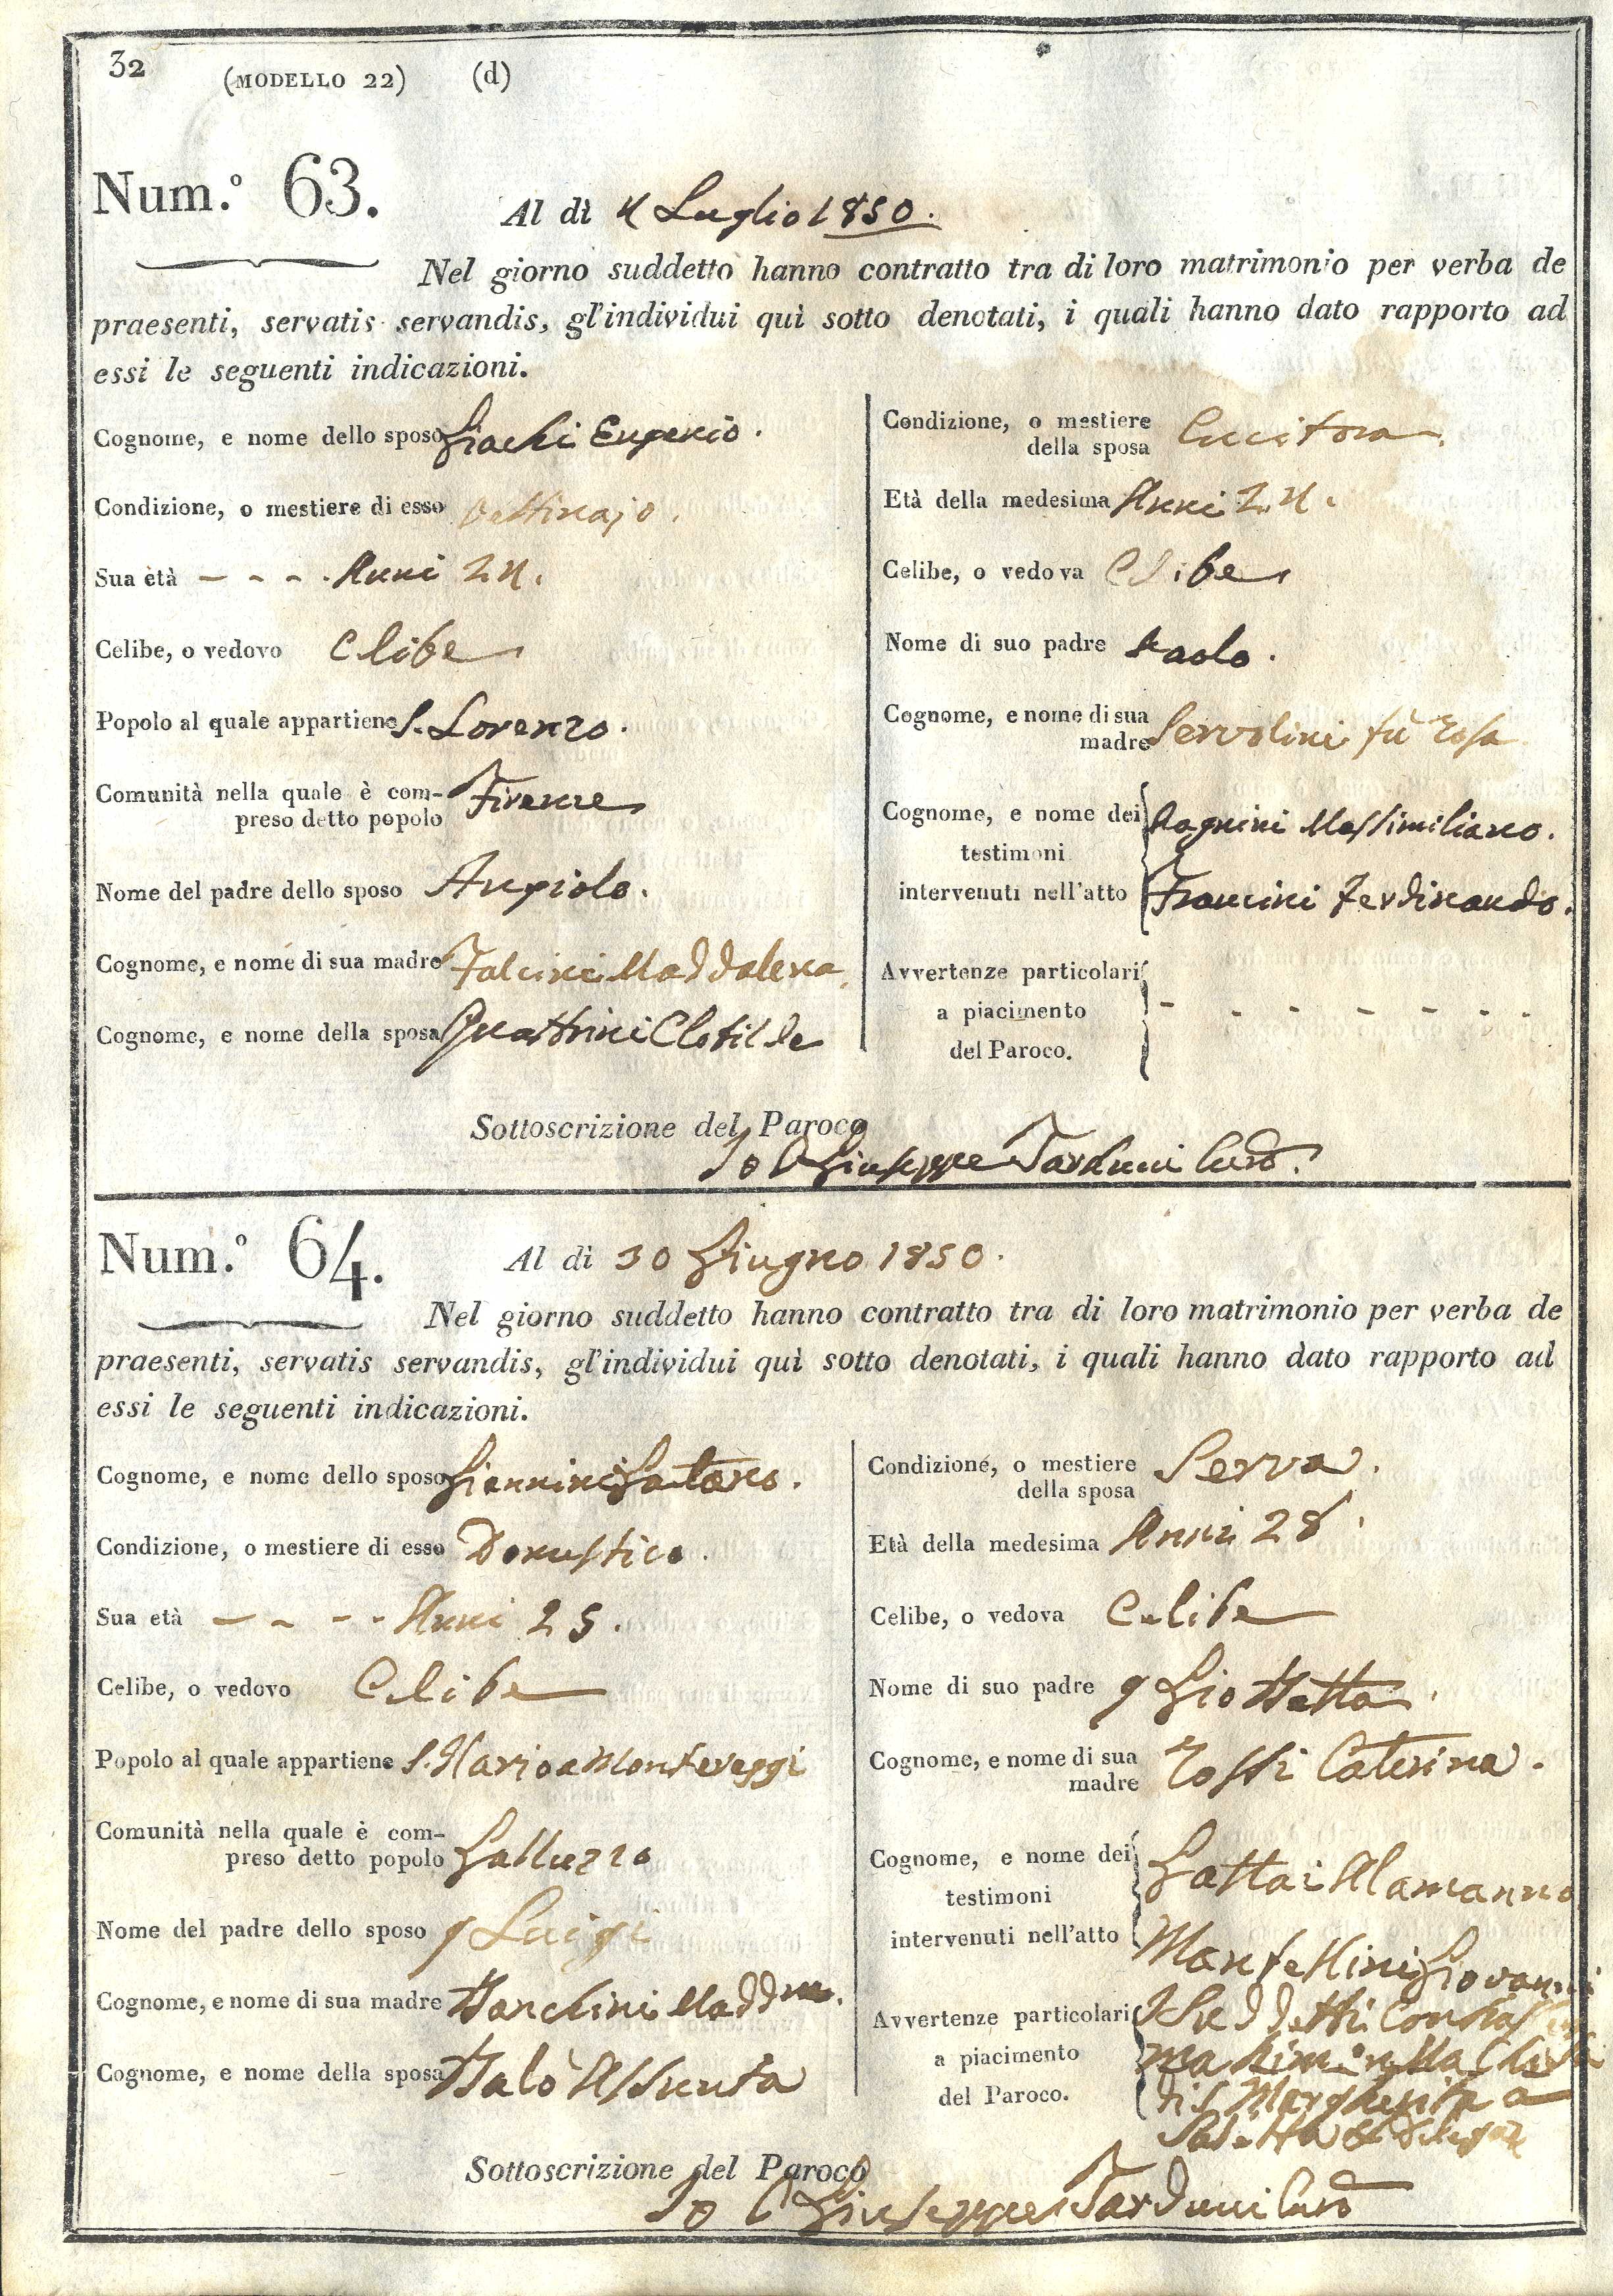 32 (MODELLO 22) (d)
Num.º 63.
Al dì 4 Luglio 1850.
Nel giorno suddetto hanno contratto tra di loro matrimonio per verba de
praesenti, servatis servandis, gl'individui quì sotto denotati, i quali hanno dato rapporto ad
essi le seguenti indicazioni.
Cognome, e nome dello sposo Giachi Eugenio.
Condizione, o mestiere di esso Pettinajo.
Sua età - - - - Anni 24.
Celibe, o vedovo Clibe
Popolo al quale appartiene S. Lorenzo.
Comunità nella quale è com-
preso detto popolo Firenze
Nome del padre dello sposo Angiolo.
Cognome, e nome di sua madre Falcini Maddalena.
Cognome, e nome della sposa Quattrini Clotilde
Condizione, o mestiere
della sposa Cucitora.
Età della medesima Anni 24.
Celibe, o vedova Clibe
Nome di suo padre Paolo.
Cognome, e nome di sua
madre Servolini fù Rosa
Cognome, e nome dei Pagnini Massimiliano.
testimoni
intervenuti nell'atto Francini Ferdinando.
Avvertenze particolari
a piacimento - - - - - - -
del Paroco.
Sottoscrizione del Paroco
Io Giuseppe Tarduci
Num.º 64.
Al dì 30 Giugno 1850.
Nel giorno suddetto hanno contratto tra di loro matrimonio per verba de
praesenti, servatis servandis, gl'individui quì sotto denotati, i quali hanno dato rapporto ad
essi le seguenti indicazioni.
Cognome, e nome dello sposo Giannini Gaetano.
Condizione, o mestiere di esso Domestico.
Sua età - - - - Anni 25.
Celibe, o vedovo Clibe
Popolo al quale appartiene S. Maria a Montereggi
Comunità nella quale è com-
preso detto popolo Galluzzo
Nome del padre dello sposo q Luigi
Cognome, e nome di sua madre
Cognome, e nome della sposa Assunta
Condizione, o mestiere
della sposa Serva.
Età della medesima Anni 28
Celibe, o vedova Celibe
Nome di suo padre q Gio Batta
Cognome, e nome di sua
madre Rossi Caterina.
Cognome, e nome dei Gattai Alamanno
testimoni
intervenuti nell'atto Mantellini Giovanni
Avvertenze particolari I Suddetti
a piacimento nella Chiesa
del Paroco. di S. Margherita a
Sottoscrizione del Paroco
Io Giuseppe Tarduci